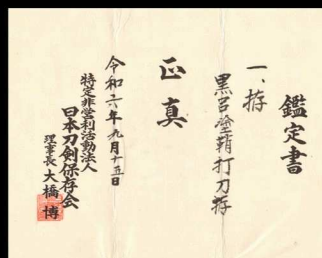 鑑定書
一、拵
黒呂塗鞘打刀拵
正真
令和六年九月十五日
特定非営利活動法人
日本刀剣保存会
理事長 大橋 博